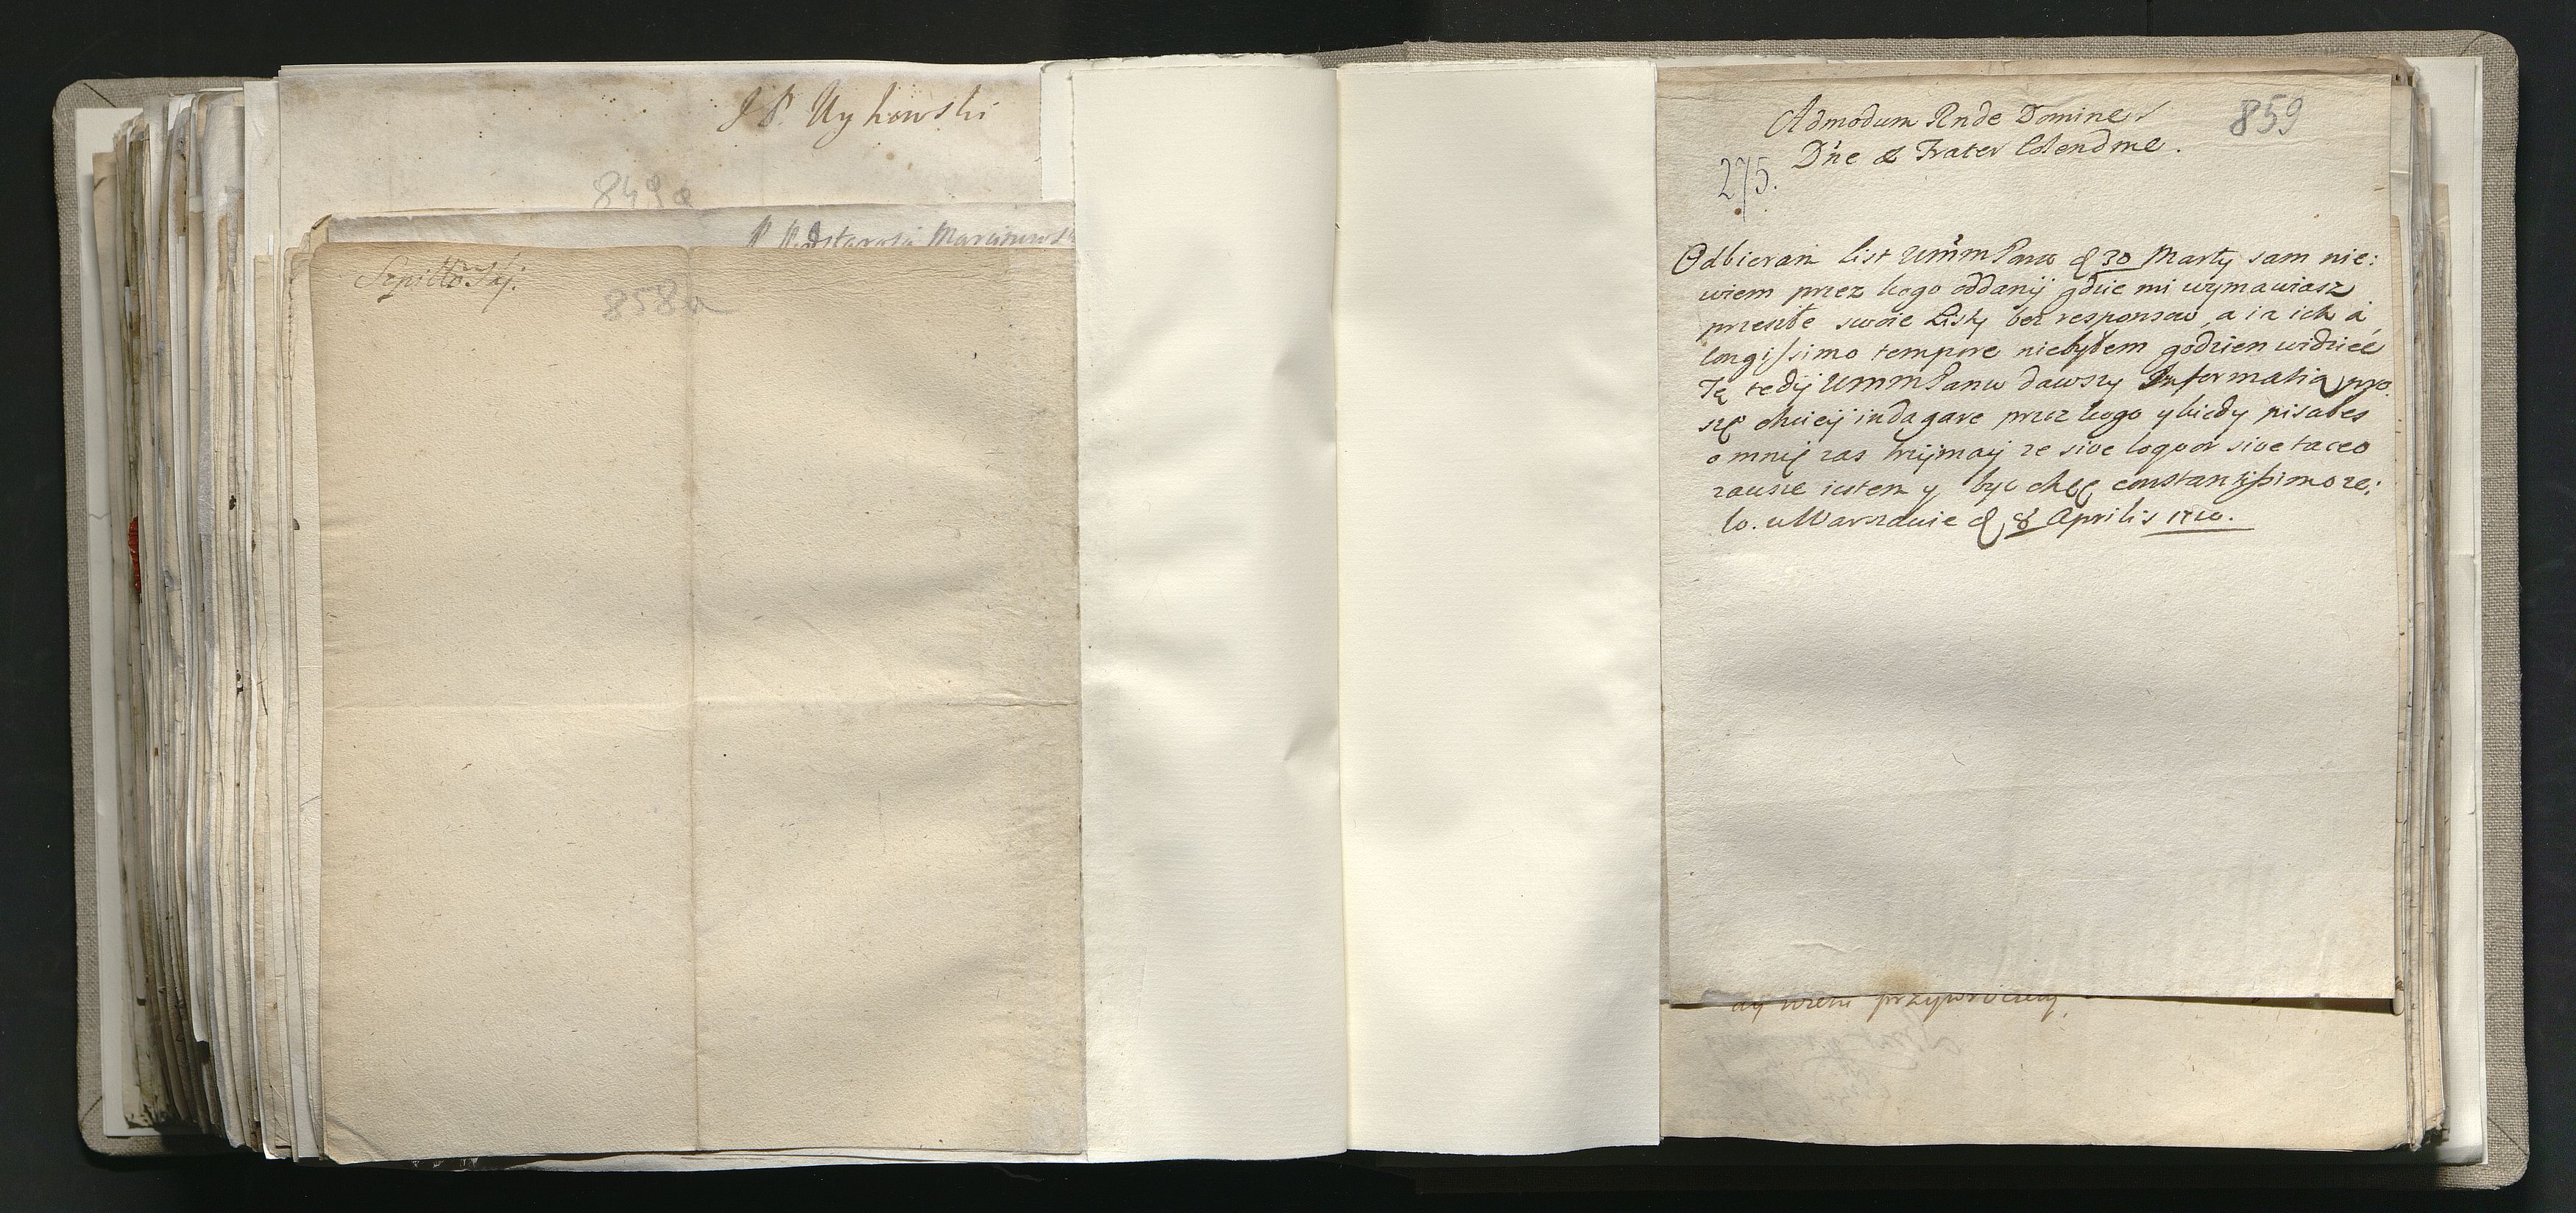 J P. Uykowski
849a
Szpitto Sky:
858a
859
Admodum Rnde Domine
Dne & Frater Colendme.
275.
Odbieram list UmmPana d 30 Marty sam nie:
wiem przez kogo oddany gdzie mi wymawiasz
przeszłe swoie Listy bez responsow, a ia ich á
longissimo tempore niebyłem godzien widzieć
Tę tedy UmmPanu dawszy Informatią pro
szę chciey indagare przez kogo y kiedy pisałes
o mnię zas trzymay ze sive loquor sive taceo
zawsze iestem y byc chcę constantissimo ze:
lo. w Warszawie d 8 Aprilis 1710.
przywroceny